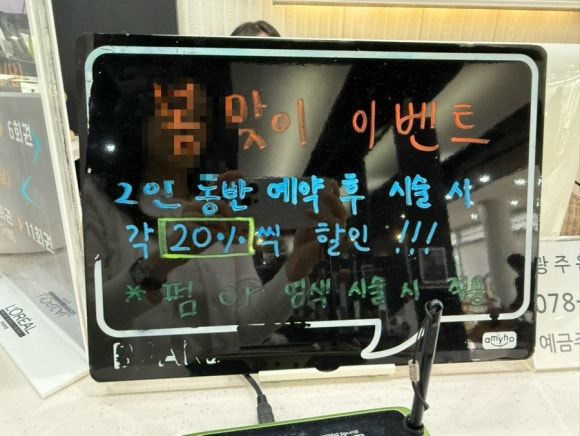 봄 맞이 이벤트
2인 동반 예약 후 시술 시
각 20% 씩 할인 !!!
* 펌 염색 시술 시 적용
amyho
6회권
11회권
L'ORÉAL
광주
078
예금주